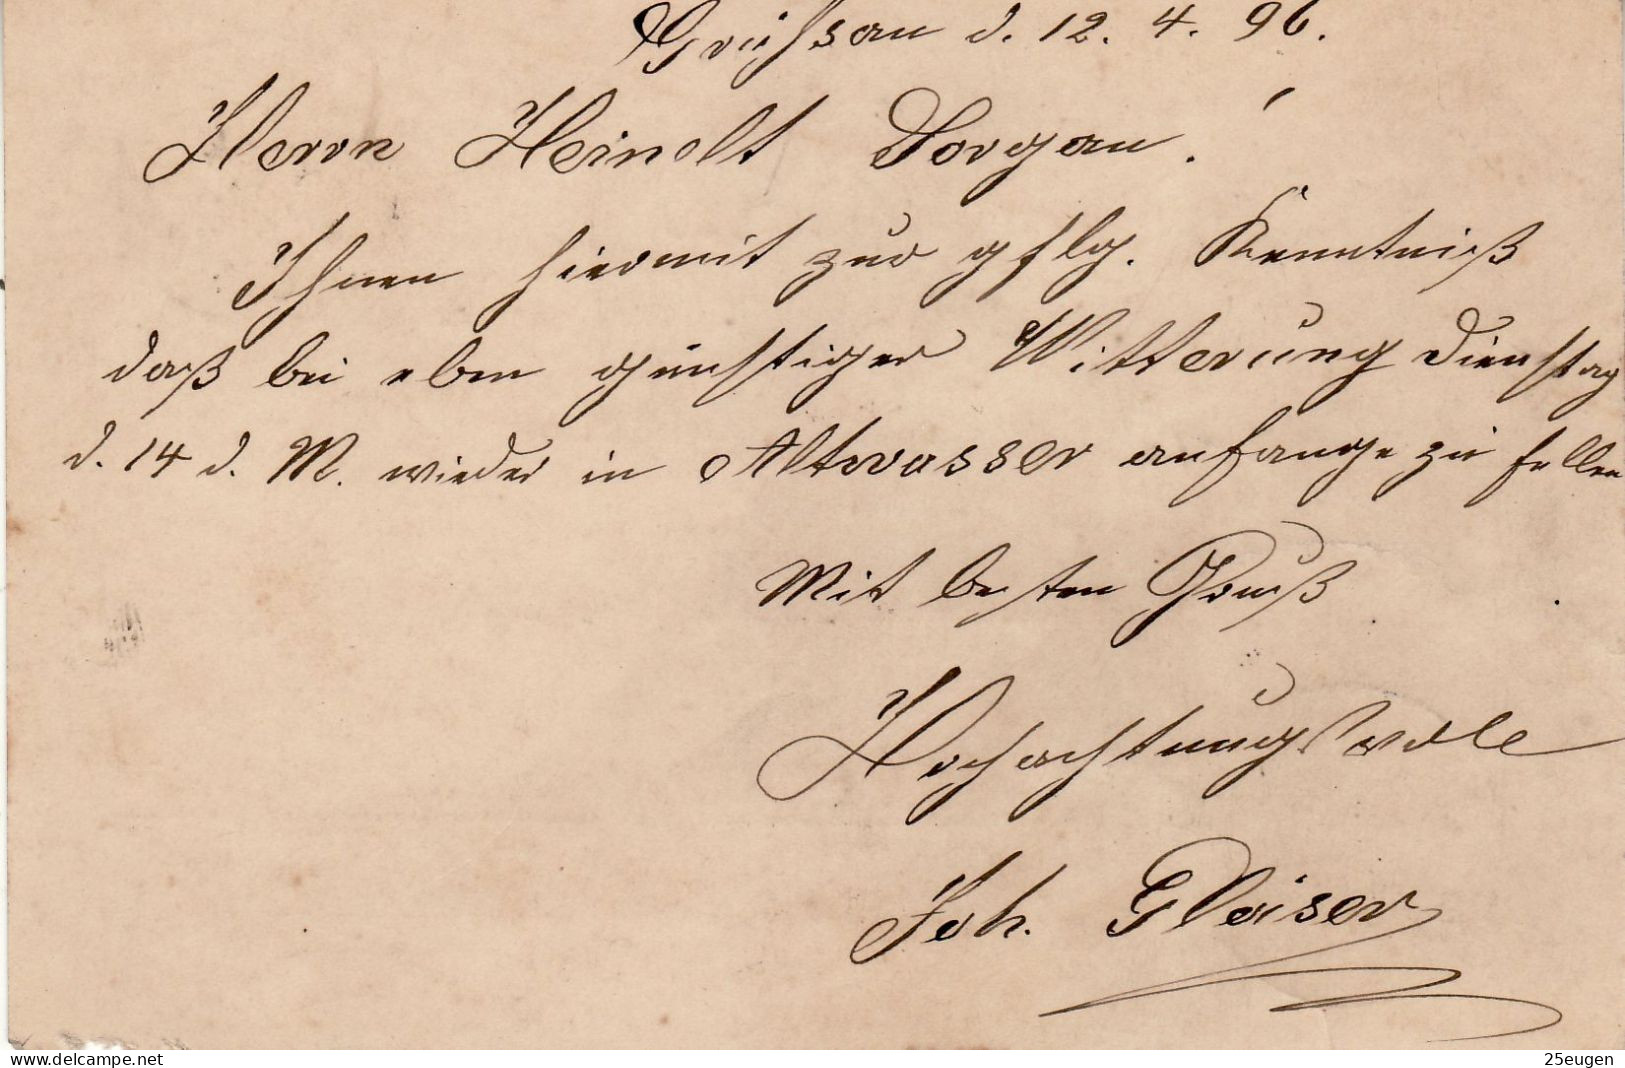 Grüssau d. 12. 4. 96.
Herrn Heinelt Torgau.
Ihnen hiermit zur gflg. Kenntniß
daß bei eben günstiger Witterung Dienstag
d. 14 d. M. wieder in Altwasser anfange zu fellen
Mit besten Gruß
Hochachtungsvoll
Joh. Glaiser
www.delcampe.net
25eugen